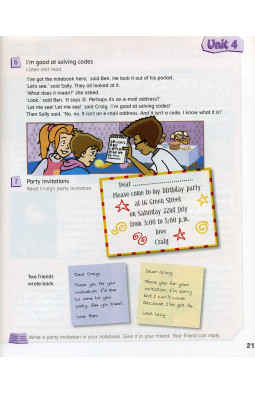 Unit 4
6 I'm good at solving codes
Listen and read.
'I've got the notebook here,' said Ben. He took it out of his pocket.
'Let's see,' said Sally. They all looked at it.
'What does it mean?' she asked.
'Look,' said Ben. 'It says @. Perhaps it's an e-mail address?'
'Let me see! Let me see!' said Craig. 'I'm good at solving codes!'
Then Sally said, 'No, no. It isn't an e-mail address. And it isn't a code. I know what it is!'
7 Party invitations
Read Craig's party invitation.
Dear
Please come to my birthday party
at 16 Green Street
on Saturday 22nd July
from 3:00 to 5:00 p.m.
love
Craig
Two friends
wrote back.
Dear Craig,
Thank you for your
invitation. I'd love
to come to your
party. See you there!
Love
Dear Craig,
Thank you for your
invitation. I'm sorry
but I can't come
because I'm
Love Lucy
Write a party invitation in your notebook. Give it to your friend. Your friend can reply.
21